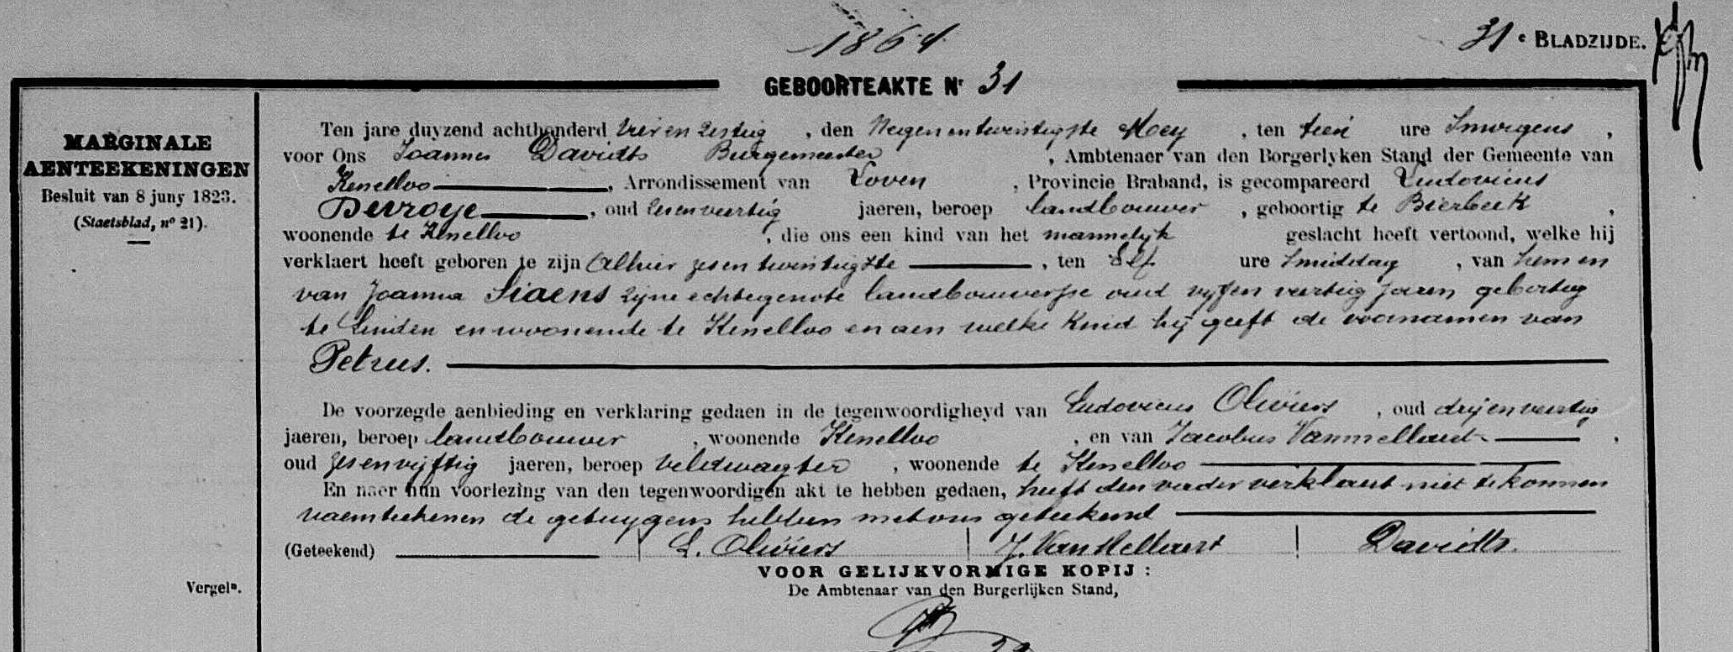 1864
31e BLADZIJDE.
GEBOORTEAKTE Nr 31
MARGINALE
AENTEEKENINGEN
Besluit van 8 juny 1823.
(Staetsblad, no 21).
Ten jare duyzend achthonderd vier en zestig , den Negen en twintigste Mey , ten tien ure Smorgens ,
voor Ons Joannes Davidts Burgemeester , Ambtenaer van den Borgerlyken Stand der Gemeente van
Kesselloo , Arrondissement van Loven , Provincie Braband, is gecompareerd Ludovicus
Devroye , oud zesenveertig jaeren, beroep landbouwer , geboortig te Bierbeek ,
woonende te Kesselloo , die ons een kind van het mannelyk geslacht heeft vertoond, welke hij
verklaert heeft geboren te zijn Alhier zesentwintigste , ten elf ure Smiddag , van hem en
van Joanna Siaens zijne echtegenote landbouwersse oud vyfenveertig jaren gebortig
te Linden en woonende te Kesselloo en aen welke kind hij geeft de voornamen van
Petrus.
De voorzegde aenbieding en verklaring gedaen in de tegenwoordigheyd van Ludovicus Oliviers , oud dryenveertig
jaeren, beroep landbouwer , woonende Kesselloo , en van Jacobus .
oud zesenvyftig jaeren, beroep veldwagter , woonende te Kesselloo
En naer hun voorlezing van den tegenwoordigen akt te hebben gedaen, heeft den vader verklaert niet te konnen
naemteekenen de getuygens hebben met ons geteekend
(Geteekend) L. Oliviers J. Davidts.
VOOR GELIJKVORMIGE KOPIJ :
De Ambtenaar van den Burgerlijken Stand,
Vergeln.